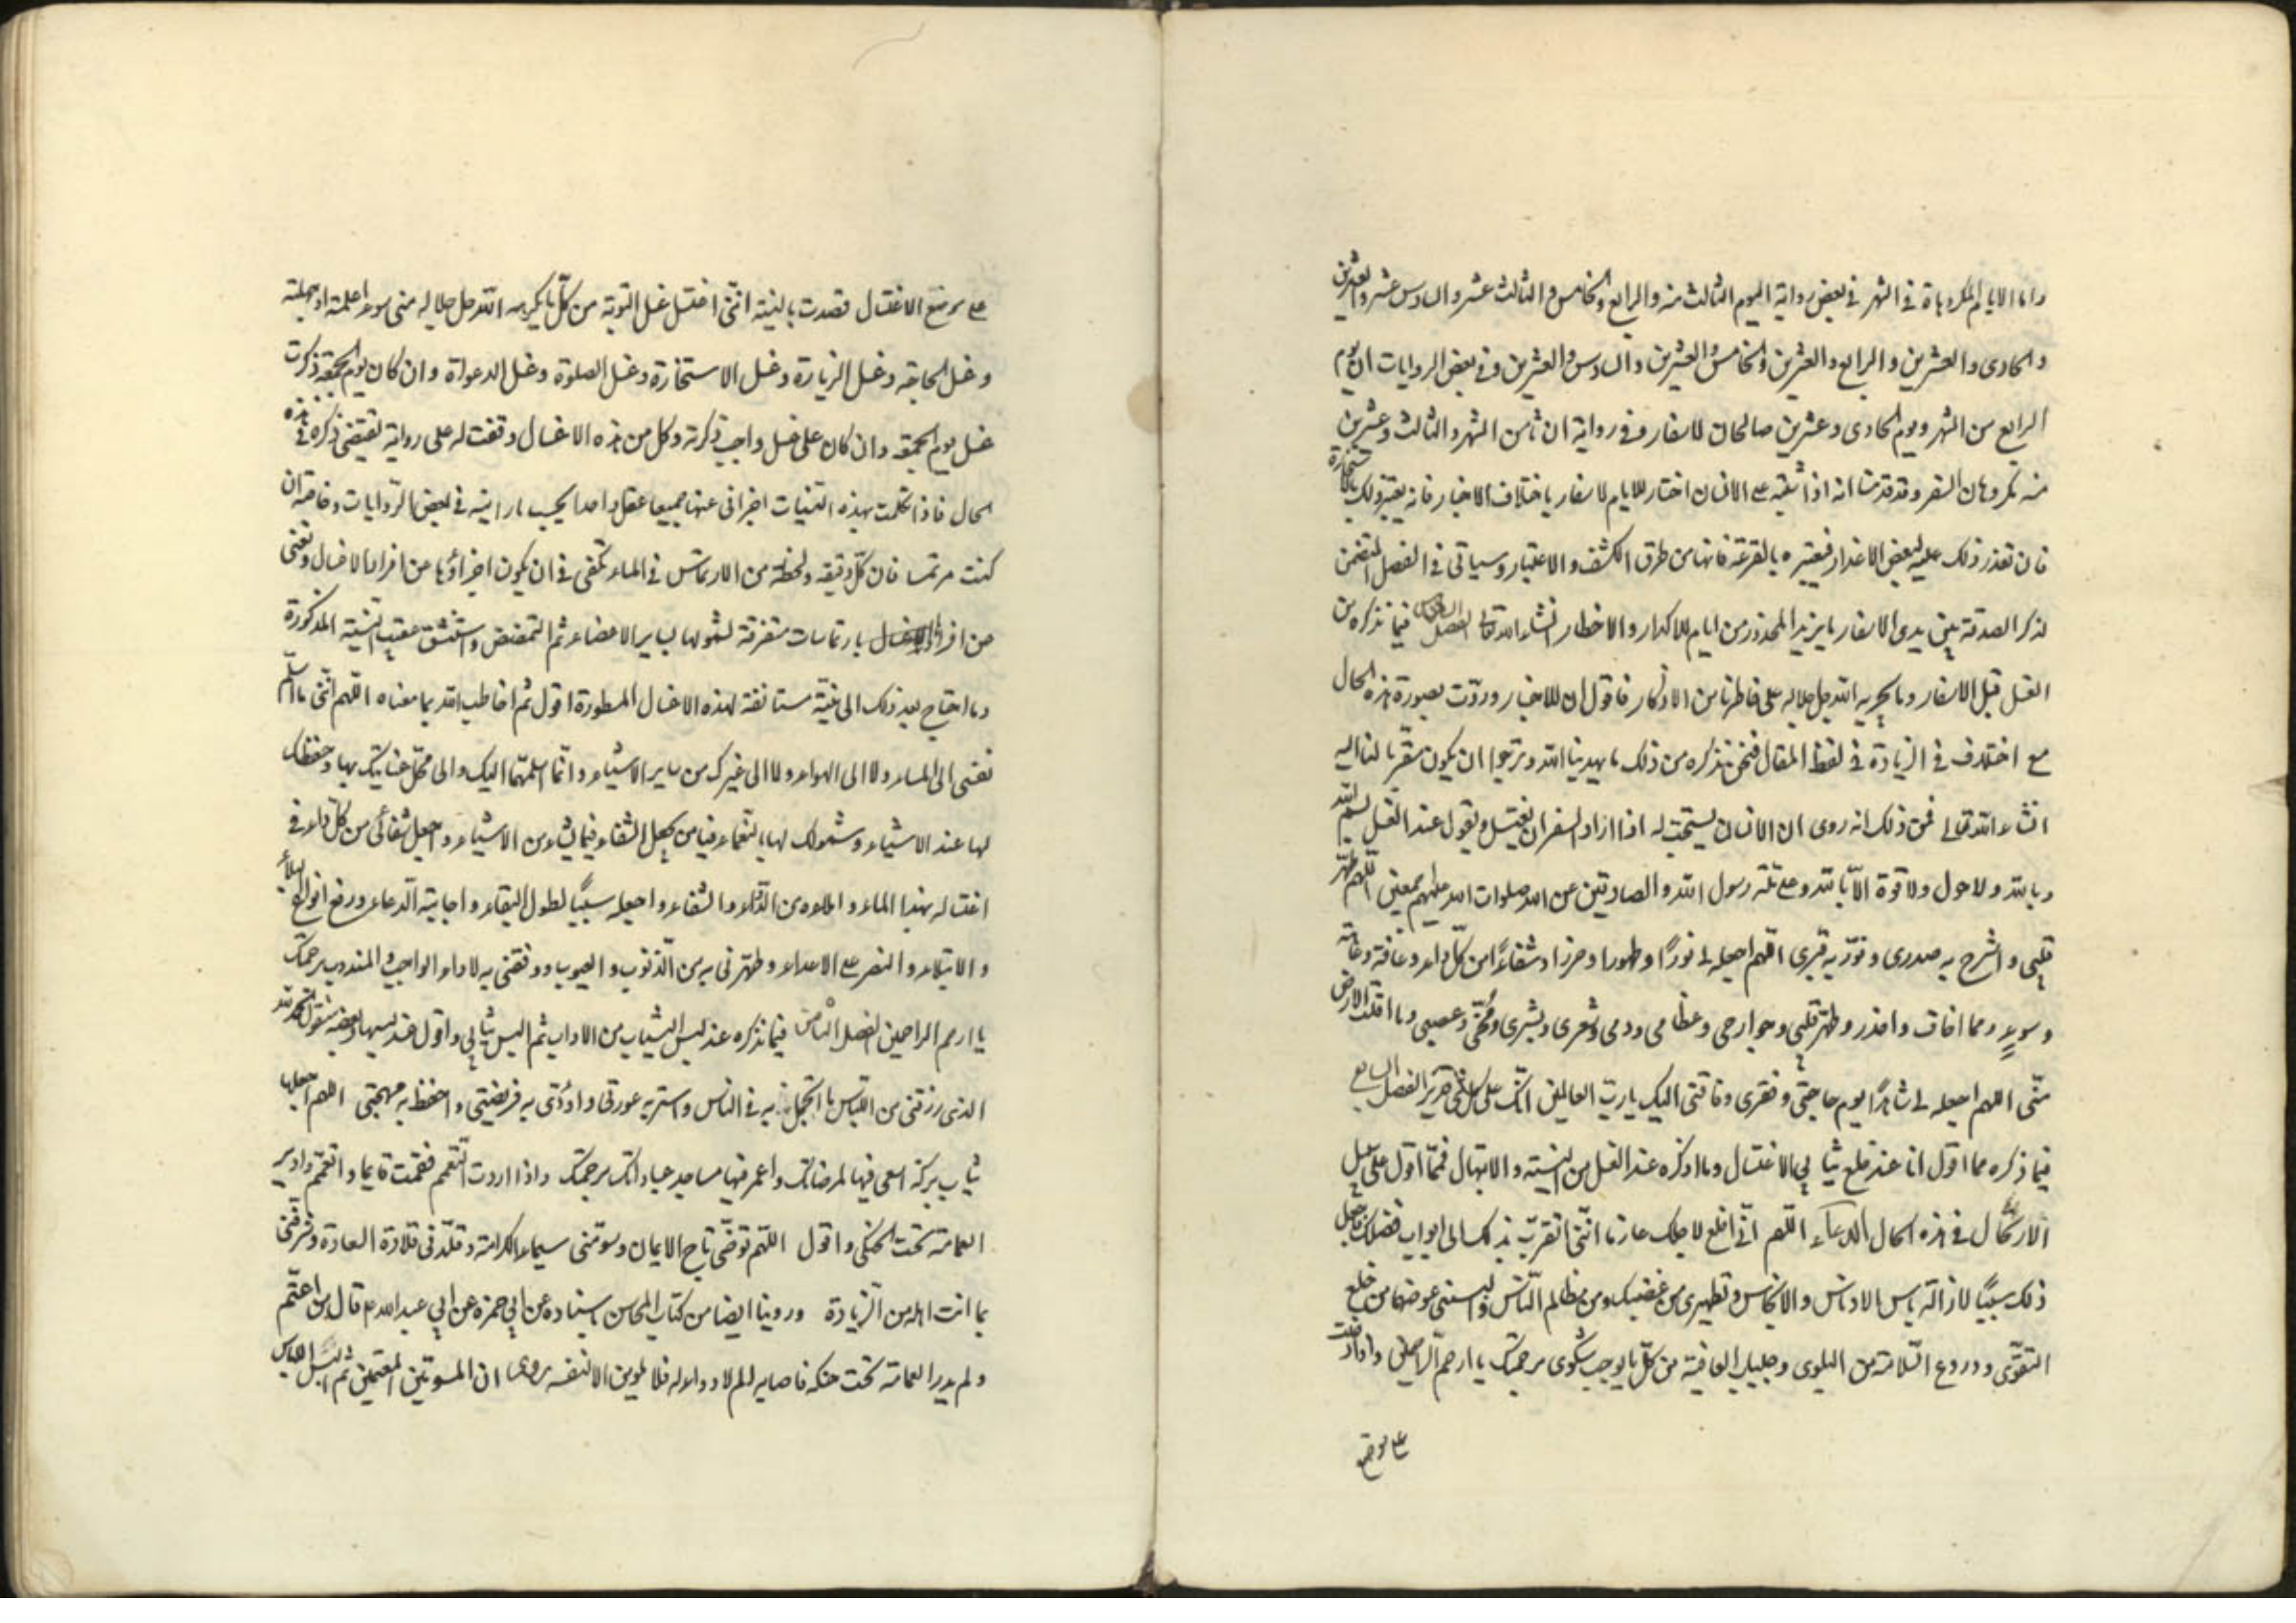 واما الايام المكروهة في الشهر في بعض رواية اليوم الثالث منه والرابع والخامس والثالث عشر والسادس عشر والعشرين
والحادى والعشرين والرابع والعشرين والخامس والعشرين والسادس والعشرين وفي بعض الروايات ان يوم
الرابع من الشهر ويوم الحادى وعشرين صالحان للاسفار وفي رواية ان ثامن الشهر والثالث وعشرين
منه مكروهان للسفر وقد قدمنا انه اذا اشتبه على الانسان اختيار الايام للاسفار باختلاف الاخبار فانه يعتبر ذلك بالاستخارة
فان تعذر ذلك عليه لبعض الاعذار فيعتبره بالقرعة فانها من طرق الكشف والاعتبار وسياتي في الفصل المتضمن
لذكر الصدقة بين يدى الاسفار ما يزيد المحذور من ايام الاكدار والاخطار انشاء الله تعالى الفصل السادس فيما نذكره من
الغسل قبل الاسفار وما يجريه الله جل جلاله على خاطرنا من الاذكار فاقول ان الاخبار وردت بصورة هذه الحال
مع اختلاف في الزيادة في لفظ المقال فنحن نذكره من ذلك ما يهدينا الله ونرجوا ان يكون مقربا لنا اليه
انشاء الله تعالى فمن ذلك انه روى ان الانسان يستحب له اذا اراد السفر ان يغتسل ويقول عند الغسل بسم الله
وبالله ولا حول ولا قوة الا بالله وعلى ملة رسول الله والصادقين عن الله صلوات الله عليهم اجمعين اللهم طهر
قلبى واشرح به صدرى ونور به قبرى اللهم اجعله لى نورًا وطهورا وحرزا وشفاءً من كل داء وآفة وعاهة
وسوء ومما اخاف واحذر وطهر قلبى وجوارحى وعظامى ودمى وشعرى وبشرى ومخى وعصبى وما اقلت الارض
منى اللهم اجعله لى شاهدًا يوم حاجتى وفقرى وفاقتى اليك يا رب العالمين انك على كل شئ قدير الفصل السابع
فيما ذكره مما اقول انا عند خلع ثيابى للاغتسال وما اذكره عند الغسل من النية والابتهال فمما اقول على سبيل
الارتجال في هذه الحال الدعاء اللهم انى اخلع لاجلك عازما اننى اتقرب بذلك الى ابواب فضلك فاجعل
ذلك سببًا لازالة لباس الادناس والانجاس وتطهيرى من غضبك ومن مظالم الناس والبسنى عوضها من خلع
التقوى ودروع السلامة من البلوى وجلباب العافية من كل ما يوجب شكوى برحمتك يا ارحم الراحمين واذا دخلت
على موضع
على موضع الاغتسال قصدت بالنية اننى اغتسل غسل التوبة من كل ما يكرهه الله جل جلاله منى سواء علمته او جهلته
وغسل الحاجة وغسل الزيارة وغسل الاستخارة وغسل الصلوة وغسل الدعوات وان كان يوم الجمعة ذكرت
غسل يوم الجمعة وان كان على غسل واجب ذكرته وكل من هذه الاغسال وقفت له على رواية تقتضى ذكره في هذه
الحال فاذا تكملت بهذه النيات اجزانى عنها جميعا غسل واحد بحسب ما رايته في بعض الروايات وخاصة ان
كنت مرتمسا فان كل دقيقة ولحظة من الارتماس في الماء تكفى في ان يكون اجزاؤها عن افراد الاغسال وتغنى
عن افراد الاغسال بارتماسات متفرقة لشمولها لساير الاعضاء ثم اتمضمض واستنشق عقيب النية المذكورة
وما احتاج بعد ذلك الى نية مستانفة لهذه الاغسال المسطورة اقول ثم اخاطب الله بما معناه اللهم اننى ما اسلم
نفسى الى الماء ولا الى الهواء ولا الى غيرك من ساير الاشياء وانما اسلمتها اليك والى محل عنايتك بها وحفظك
لها عند الاشياء وشمولك لها بالنعماء فيا من يجعل الشفاء فيما يشاء من الاشياء واجعل شفائى من كل داء في
اغتسالى بهذا الماء واملاه من الدواء والشفاء واجعله سببًا لطول البقاء واجابة الدعاء ودفع انواع البلاء
والابتلاء والنصر على الاعداء وطهرنى به من الذنوب والعيوب ووفقنى به لاداء الواجب والمندوب برحمتك
يا ارحم الراحمين الفصل الثامن فيما نذكره عند لبس الثياب من الاداب ثم البس ثيابى واقول عند لبسها وبعضه منقول الحمد لله
الذى رزقنى من اللباس ما اتجمل به في الناس واستر به عورتى واؤدى به فريضتى واحفظ به مهجتى اللهم اجعلها
ثياب بركة اسعى فيها لمرضاتك واعمر فيها مساجد عباداتك برحمتك واذا اردت التعمم فقمت قايما واتعمم وادير
العمامة تحت الحنك واقول اللهم توجنى تاج الايمان وسومنى سيماء الكرامة وقلدنى قلادة السعادة وشرفنى
بما انت اهله من الزيادة وروينا ايضا من كتاب المحاسن باسناده عن ابى حمزه عن ابى عبد الله ع قال من اعتم
ولم يدير العمامة تحت حنكه فاصابه الم لا دواء له فلا يلومن الا نفسه وروى ان المسومين المعتمين ثم البس اللباس